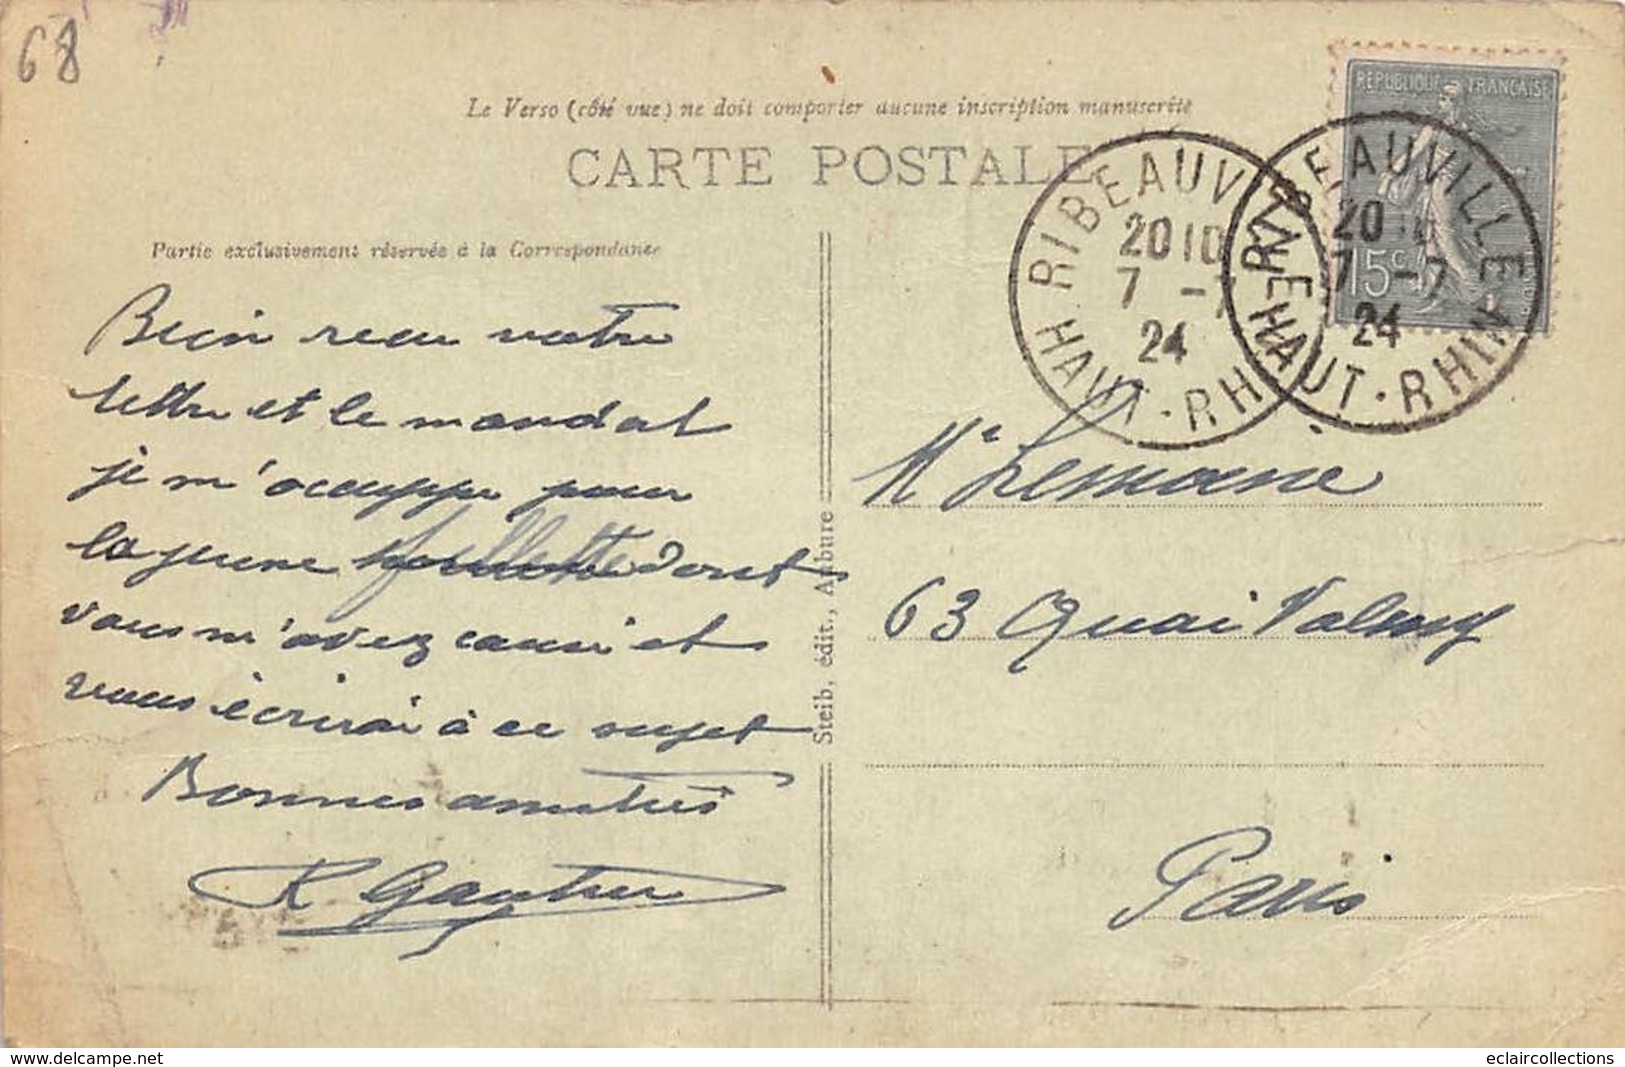 68
Le Verso (côté vue) ne doit comporter aucune inscription manuscrite
CARTE POSTALE
REPUBLIQUE FRANÇAISE
15c
RIBEAUVILLE
20 10
7 - 7
24
HAUT-RHIN
RIBEAUVILLE
20 10
7 - 7
24
HAUT-RHIN
Partie exclusivement réservée à la Correspondance
Bien recu votre
lettre et le mandat
je m'occuppe pour
la jeune fillette dont
vous m'avez causé et
vous écrirai à ce sujet
Bonnes amitiés
R Gautier
Steib, édit., Aubure
Mr Lemaire
63 Quai Valmy
Paris
www.delcampe.net
eclaircollections